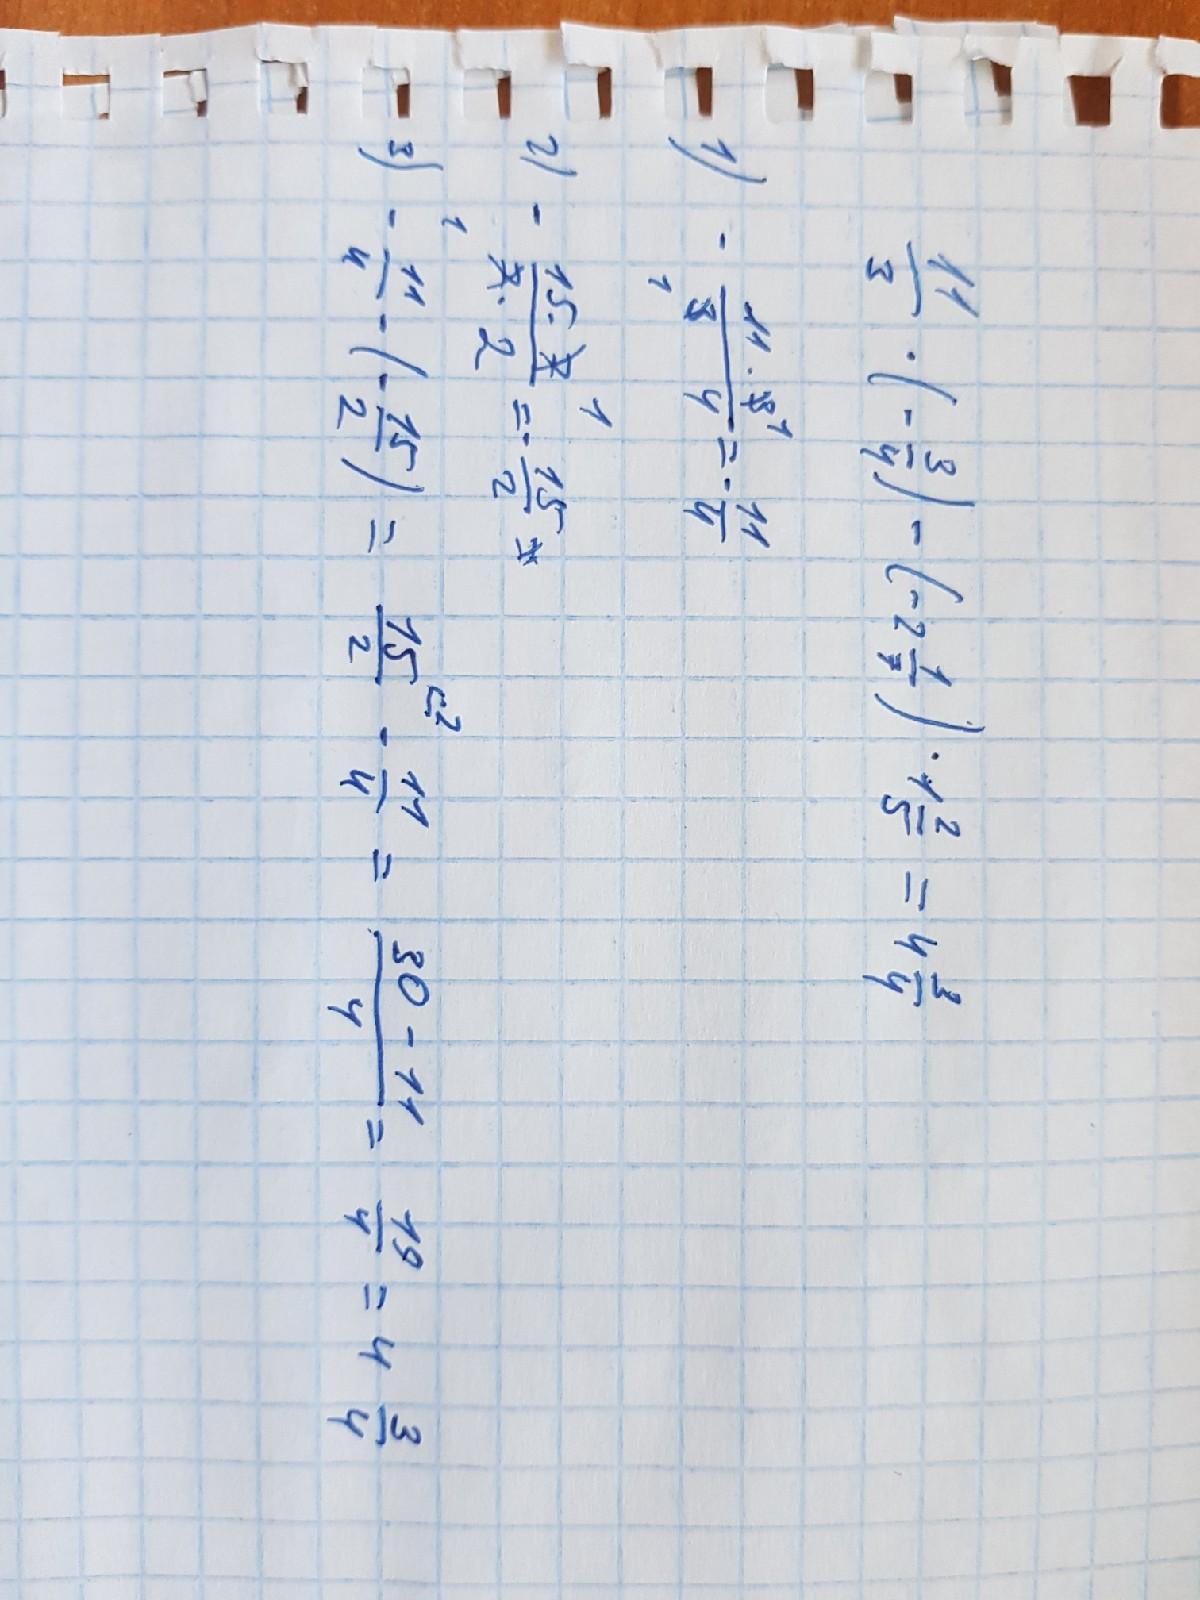 11/3 · (-3/4) - (-2 1/7) · 1 2/5 = 4 3/4
1) - 11·3¹/3·4 = - 11/4
1
2) - 15·7/7·2 = - 15/2
1 1
3) - 11/4 - (-15/2) = 15/2 ² - 11/4 = 30-11/4 = 19/4 = 4 3/4